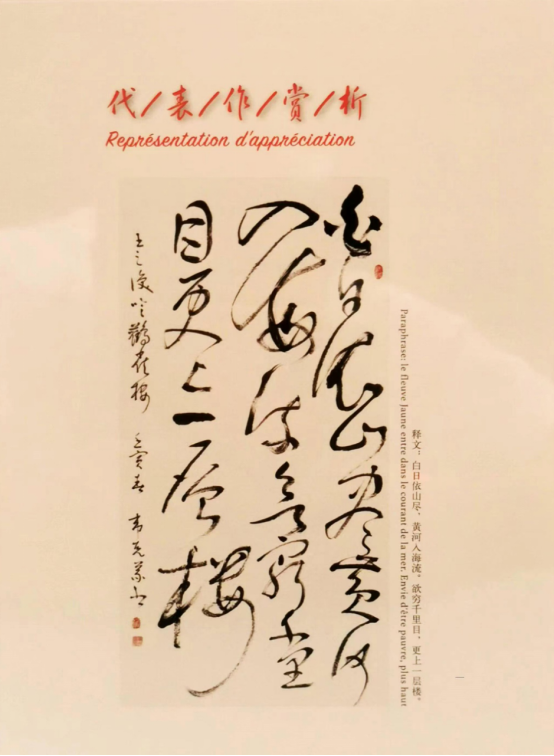 代/表/作/赏/析
Représentation d'appréciation
释文：白日依山尽，黄河入海流。欲穷千里目，更上一层楼。
Paraphrase: le fleuve Jaune entre dans le courant de la mer. Envie d'être pauvre, plus haut
白日依山尽黄河
入海流欲穷千里
目更上一层楼
王之涣 鹳雀楼 壬寅春